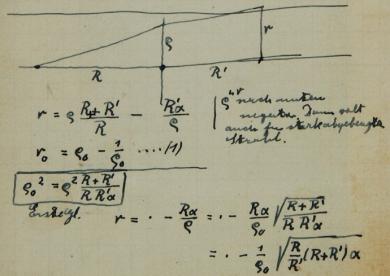 ρ r
R R'
r = ρ (R+R')/R - R'α/ρ
ρ u. r nach unten
negativ. Dann gilt
auch für stark abgebeugte
Strahl.
r₀ = ρ₀ - 1/ρ₀ ....(1)
ρ₀² = ρ² (R+R')/(R R'α)
r = · - Rα/ρ = · - Rα/ρ₀ √((R+R')/(R R'α))
= · - 1/ρ₀ √(R/R' (R+R') α)